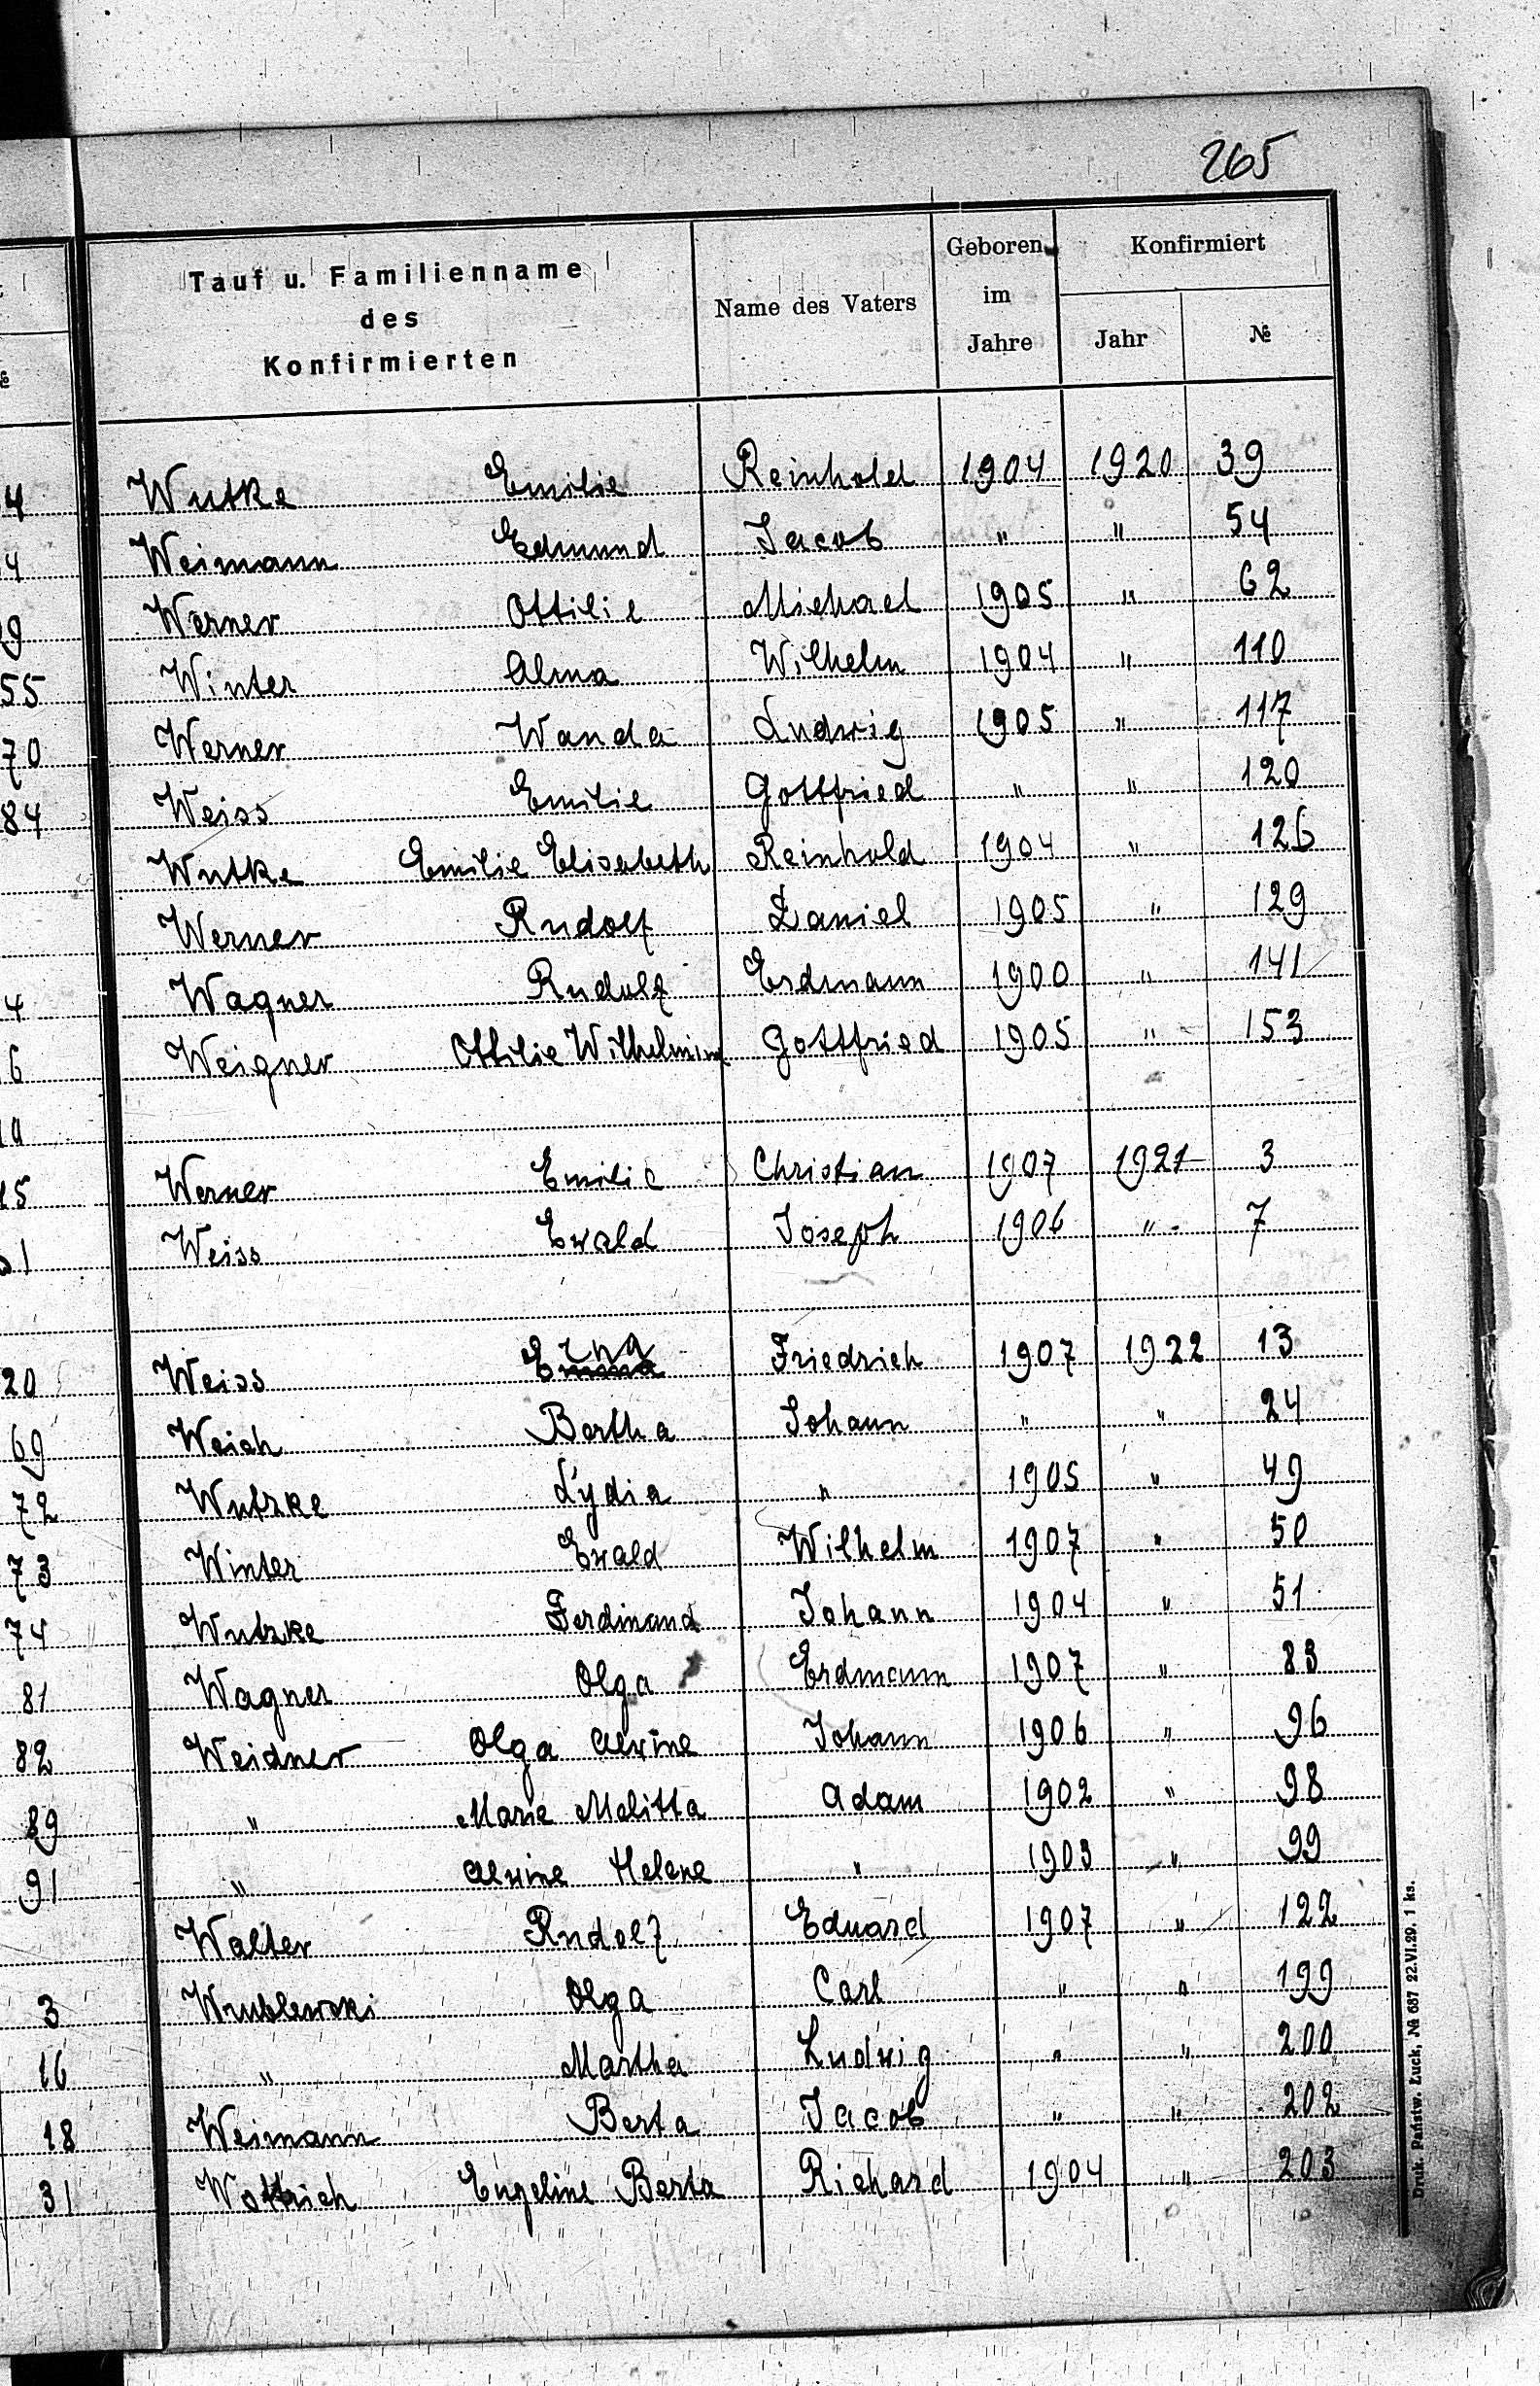 265
Tauf u. Familienname des Konfirmierten | Name des Vaters | Geboren im Jahre | Konfirmiert Jahr | №
4 Wutke Emilie Reinhold 1904 1920 39
4 Weimann Edmund Jacob " " 54
9 Werner Ottilie Michael 1905 " 62
55 Winter Alma Wilhelm 1904 " 110
70 Werner Wanda Ludwig 1905 " 117
84 Weiss Emilie Gottfried " " 120
Wutke Emilie Elisabeth Reinhold 1904 " 126
Werner Rudolf Daniel 1905 " 129
4 Wagner Rudolf Erdmann 1900 " 141
6 Weigner Ottilie Wilhelmine Gottfried 1905 " 153
15 Werner Emilie Christian 1907 1921 3
51 Weiss Ewald Joseph 1906 " 7
20 Weiss Erna Friedrich 1907 1922 13
69 Weich Bertha Johann " " 24
72 Wutzke Lydia " 1905 " 49
73 Winter Ewald Wilhelm 1907 " 50
74 Wutzke Ferdinand Johann 1904 " 51
81 Wagner Olga Erdmann 1907 " 83
82 Weidner Olga Alwine Johann 1906 " 96
89 " Marie Melitta Adam 1902 " 98
91 " Alwine Helene " 1903 " 99
Walter Rudolf Eduard 1907 " 122
3 Wrublewski Olga Carl " " 199
16 " Martha Ludwig " " 200
18 Weimann Berta Jacob " " 202
31 Wottrich Engeline Berta Richard 1904 " 203
Druk. Państw. Łuck, № 687 22.VI.29. 1 ks.